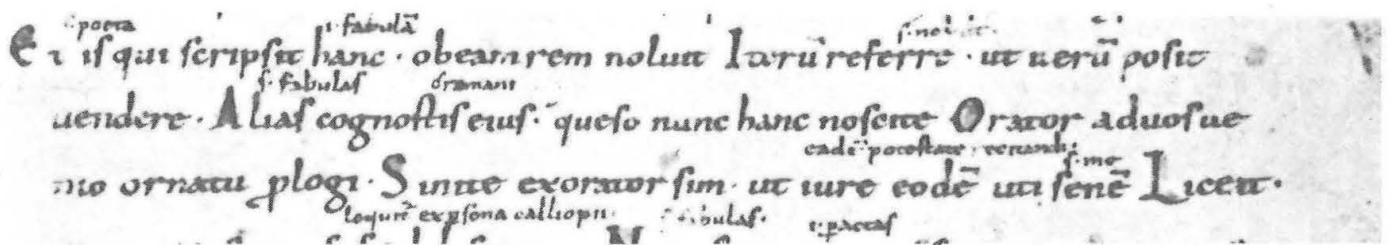 poeta .i. fabulā
Et is qui scripsit hanc · obeam rem noluit Iterū referre · ut uerū posit
s. fabulas
uendere · Alias cognostis eius · queso nunc hanc noscite Orator aduos ue
eadē potestate
s. me
nio ornatu plogi · Sinite exorator sim · ut iure eodē uti senē Liceat ·
loquit̄ expsona calliopii · fabulas · .i. pactas